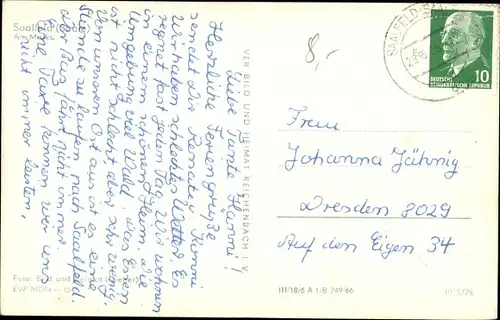 Saalbad
Am Markt
Liebe Tante Hanni!
Herzliche Feriengrüße
sendet Dir Renate, Konni
Wir haben schlechtes Wetter. Es
regnet fast jeden Tag. Wir wohnen
in einem schönen Heim. die
Umgebung viel Wald. das Essen
ist nicht schlecht aber sehr wenig.
Von unseren Ort aus ist es eine
Stunde zu laufen nach Saalfeld.
der Bus fährt nicht immer.
Eine Taxe können wir uns
nicht immer leisten.
Foto: Bild und Heimat
VEB BILD UND HEIMAT REICHENBACH I. V.
8,-
SAALFELD (SAALE)
DEUTSCHE
DEMOKRATISCHE REPUBLIK
10
Frau
Johanna Jähnig
Dresden 8029
Auf den Eigen 34
III/18/6 A 1/B 249/66